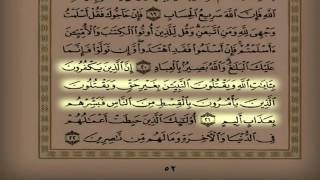 ٱللَّهِ فَإِنَّ ٱللَّهَ سَرِيعُ ٱلْحِسَابِ ١٩ فَإِنْ حَآجُّوكَ فَقُلْ أَسْلَمْتُ
وَجْهِيَ لِلَّهِ وَمَنِ ٱتَّبَعَنِ وَقُل لِّلَّذِينَ أُوتُوا۟ ٱلْكِتَٰبَ وَٱلْأُمِّيِّۦنَ
ءَأَسْلَمْتُمْ فَإِنْ أَسْلَمُوا۟ فَقَدِ ٱهْتَدَوا۟ وَّإِن تَوَلَّوْا۟ فَإِنَّمَا
عَلَيْكَ ٱلْبَلَٰغُ وَٱللَّهُ بَصِيرٌۢ بِٱلْعِبَادِ ٢٠ إِنَّ ٱلَّذِينَ يَكْفُرُونَ
بِـَٔايَٰتِ ٱللَّهِ وَيَقْتُلُونَ ٱلنَّبِيِّۦنَ بِغَيْرِ حَقٍّ وَيَقْتُلُونَ
ٱلَّذِينَ يَأْمُرُونَ بِٱلْقِسْطِ مِنَ ٱلنَّاسِ فَبَشِّرْهُم
بِعَذَابٍ أَلِيمٍ ٢١ أُو۟لَٰٓئِكَ ٱلَّذِينَ حَبِطَتْ أَعْمَٰلُهُمْ
فِى ٱلدُّنْيَا وَٱلْـَٔاخِرَةِ وَمَا لَهُم مِّن نَّٰصِرِينَ ٢٢
٥٢